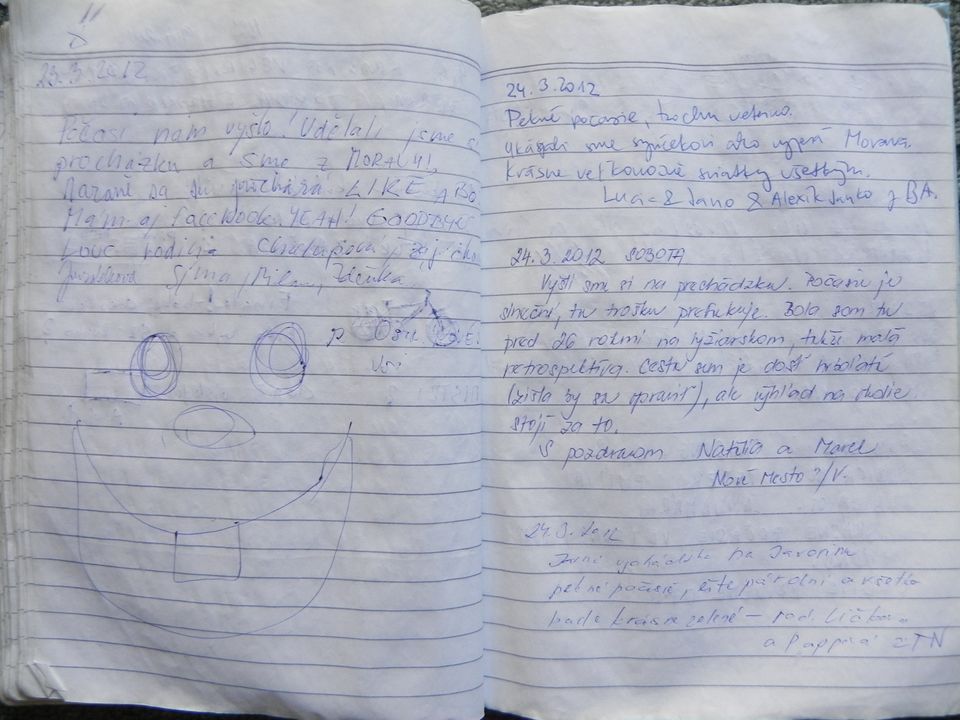 23.3.2012
Počasí nám vyšlo! Udělali jsme si
procházku a sme z MORAVY!
sa su LIKE ABO
Mám aj facebook. YEAH! GOODBYE
rodilja
Sima, Zdeňka
24.3.2012
Pekné počasie, trochu veterno.
Ukázali sme synčekovi ako vyzerá Morava.
Krásne veľkonočné sviatky všetkým.
Luc & Jano & Alexik Janko z BA.
24.3.2012 SOBOTA
Vyšli sme si na prechádzku. Počasie je
slnečné, tu trošku prefukuje. Bola som tu
pred 26 rokmi na lyžiarskom, takže malá
retrospektíva. Cesta sem je dosť hrboľatá
(zišla by sa opraviť), ale výhľad na okolie
stojí za to.
S pozdravom Natália a Marcel
Nové Mesto n/V.
24.3.2012
Jarná vychádzka na Javorinu
pekné počasie, ešte pár dní a všetko
bude krásne zelené – rod.
a z TN